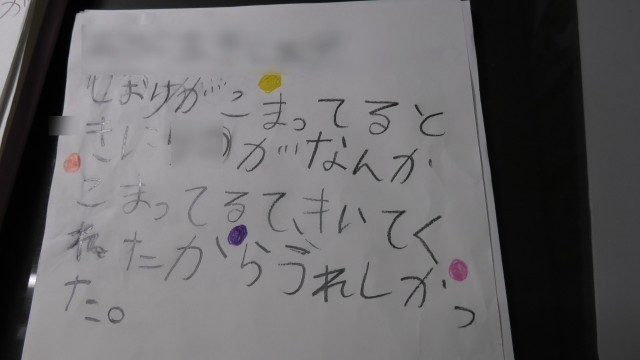 こまってると
きに
がなんか
こまってるて、きいてく
れたからうれしかっ
た。